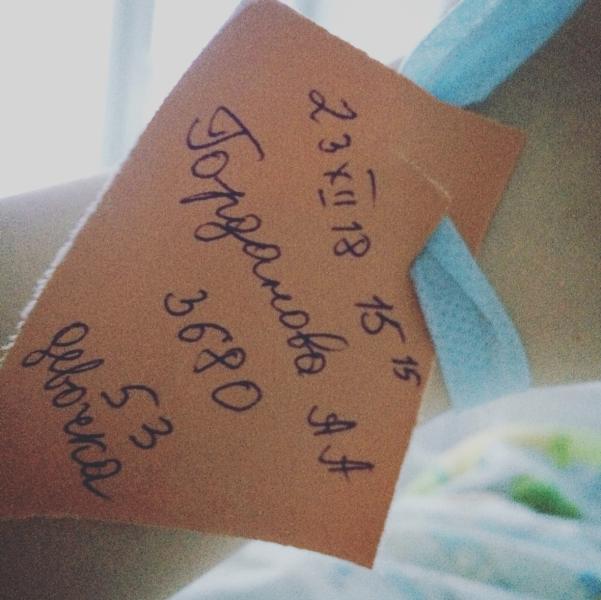 23 XII 18 15 15
Горданова А А
3680 53
девочка